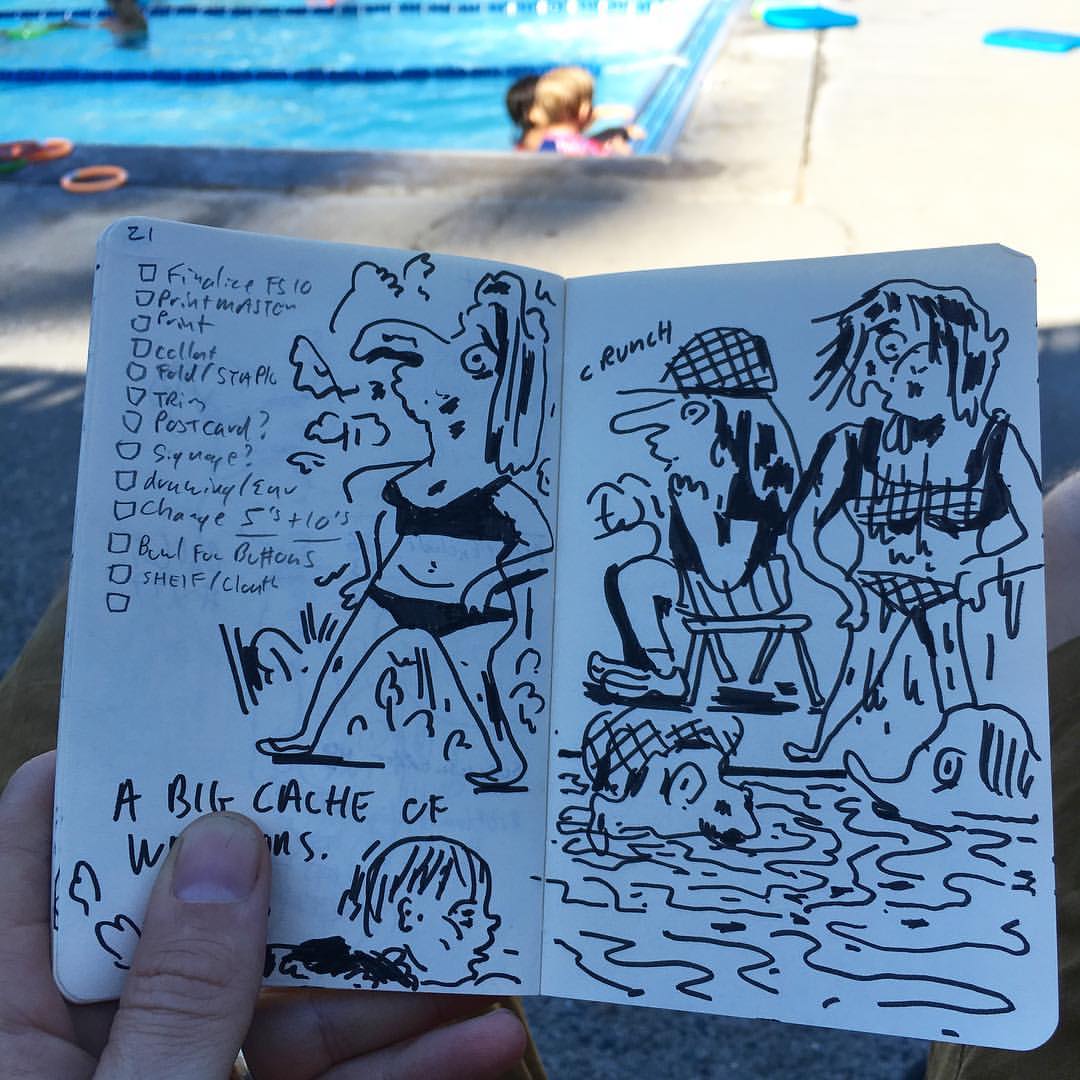 21
Finalize FS10
Print MASTER
Print
Collate
Fold/STAPLE
TRim
Postcard?
Signage?
drawing/Env
Change 5's + 10's
Bowl For Buttons
SHElF/Cloth
A BIG CACHE OF
CRUNCH